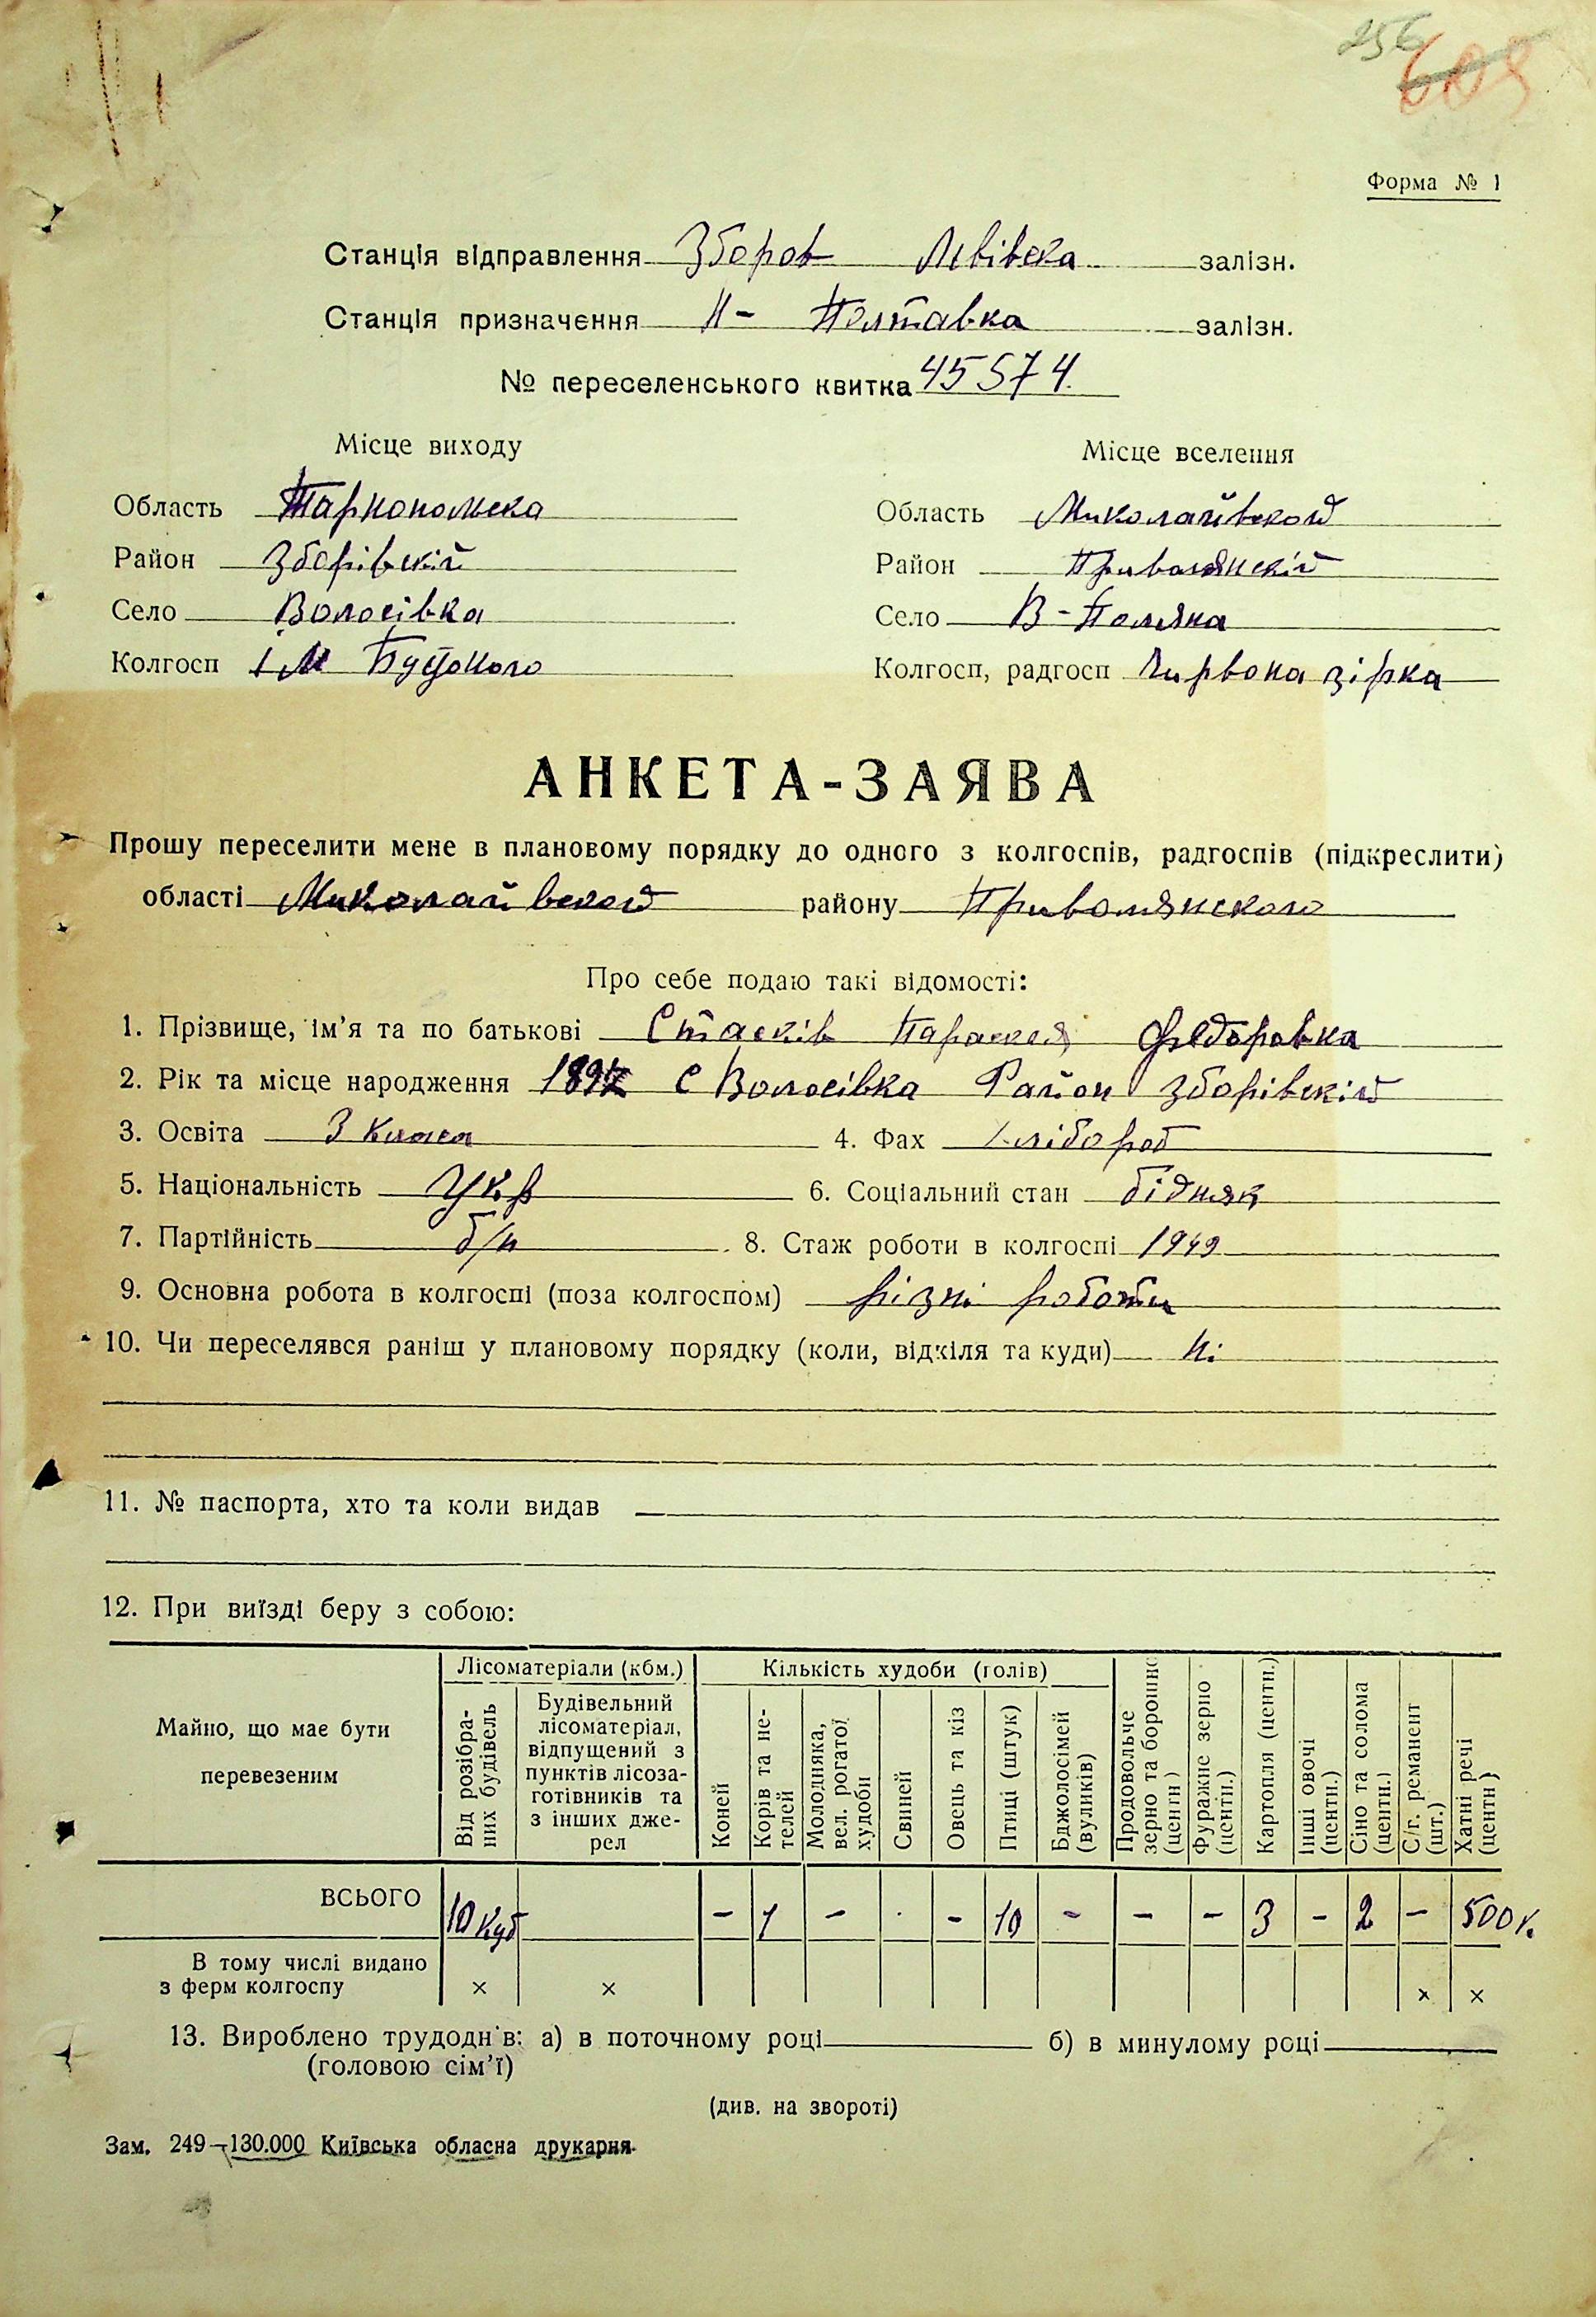 256
609
Форма № 1
Станція відправлення Зборов Львівска залізн.
Станція призначення Н- Полтавка залізн.
№ переселенського квитка 45574.
Місце виходу Місце вселення
Область Тарнопольска Область Миколаївской
Район Зборівскій Район Привольянскій
Село Волосівка Село В-Поляна
Колгосп ім Колгосп, радгосп Чирвона зірка
АНКЕТА-ЗАЯВА
Прошу переселити мене в плановому порядку до одного з колгоспів, радгоспів (підкреслити)
області Миколаївской району Привольянского
Про себе подаю такі відомості:
1. Прізвище, ім'я та по батькові Стасків Параска Федоровна
2. Рік та місце народження с Волосівка Район Зборівскій
3. Освіта 3 класа 4. Фах хлібороб
5. Національність Укр 6. Соціальний стан бідняк
7. Партійність б/п 8. Стаж роботи в колгоспі 1949
9. Основна робота в колгоспі (поза колгоспом) різні роботи
10. Чи переселявся раніш у плановому порядку (коли, відкіля та куди) Ні
11. № паспорта, хто та коли видав
12. При виїзді беру з собою:
Майно, що має бути перевезеним
Лісоматеріали (кбм.)
Від розібраних будівель
Будівельний лісоматеріал, відпущений з пунктів лісозаготівників та з інших джерел
Кількість худоби (голів)
Коней
Корів та нетелей
Молодняка, вел. рогатої худоби
Свиней
Овець та кіз
Птиці (штук)
Бджолосімей (вуликів)
Продовольче зерно та борошно (центн)
Фуражне зерно (центн.)
Картопля (центн.)
Інші овочі (центн.)
Сіно та солома (центн.)
С/г. реманент (шт.)
Хатні речі (центн)
ВСЬОГО 10 куб - 1 - · - 10 - - - 3 - 2 - 500 к.
В тому числі видано
з ферм колгоспу × × × ×
13. Вироблено трудоднів: а) в поточному році б) в минулому році
(головою сім'ї)
(див. на звороті)
Зам. 249—130.000 Київська обласна друкарня